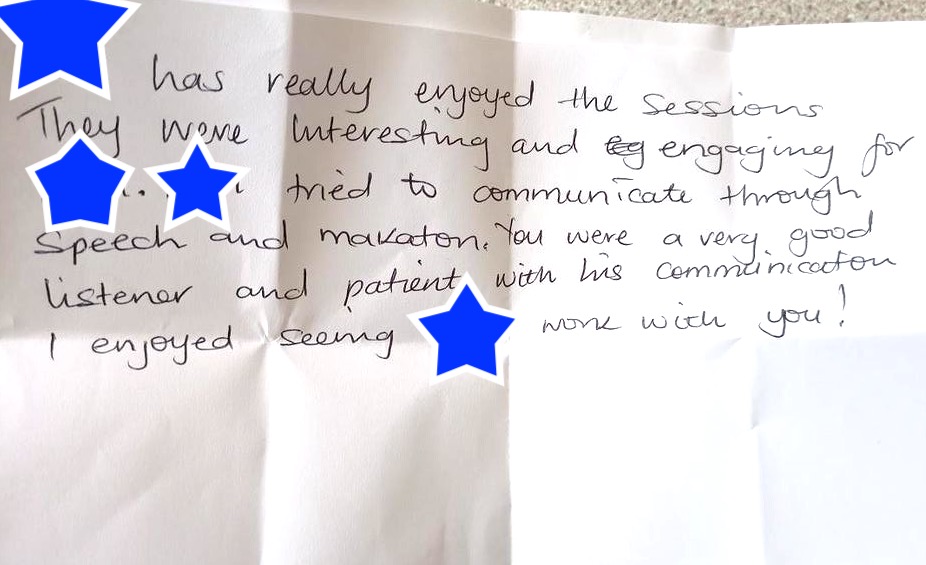 has really enjoyed the sessions
They were interesting and eg engaging for
tried to communicate through
speech and makaton. You were a very good
listener and patient with his communication
I enjoyed seeing work with you!